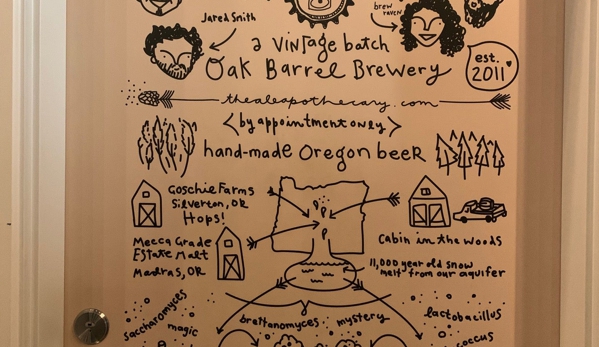 Jared Smith
brew raven
a vintage batch
Oak Barrel Brewery
est. 2011
thealeapothecary.com
by appointment only
hand-made Oregon beer
Goschie Farms
Silverton, OR
Hops!
Mecca Grade
Estate Malt
Madras, OR
Cabin in the woods
11,000 year old snow
melt from our aquifer
saccharomyces
magic
brettanomyces
mystery
lactobacillus